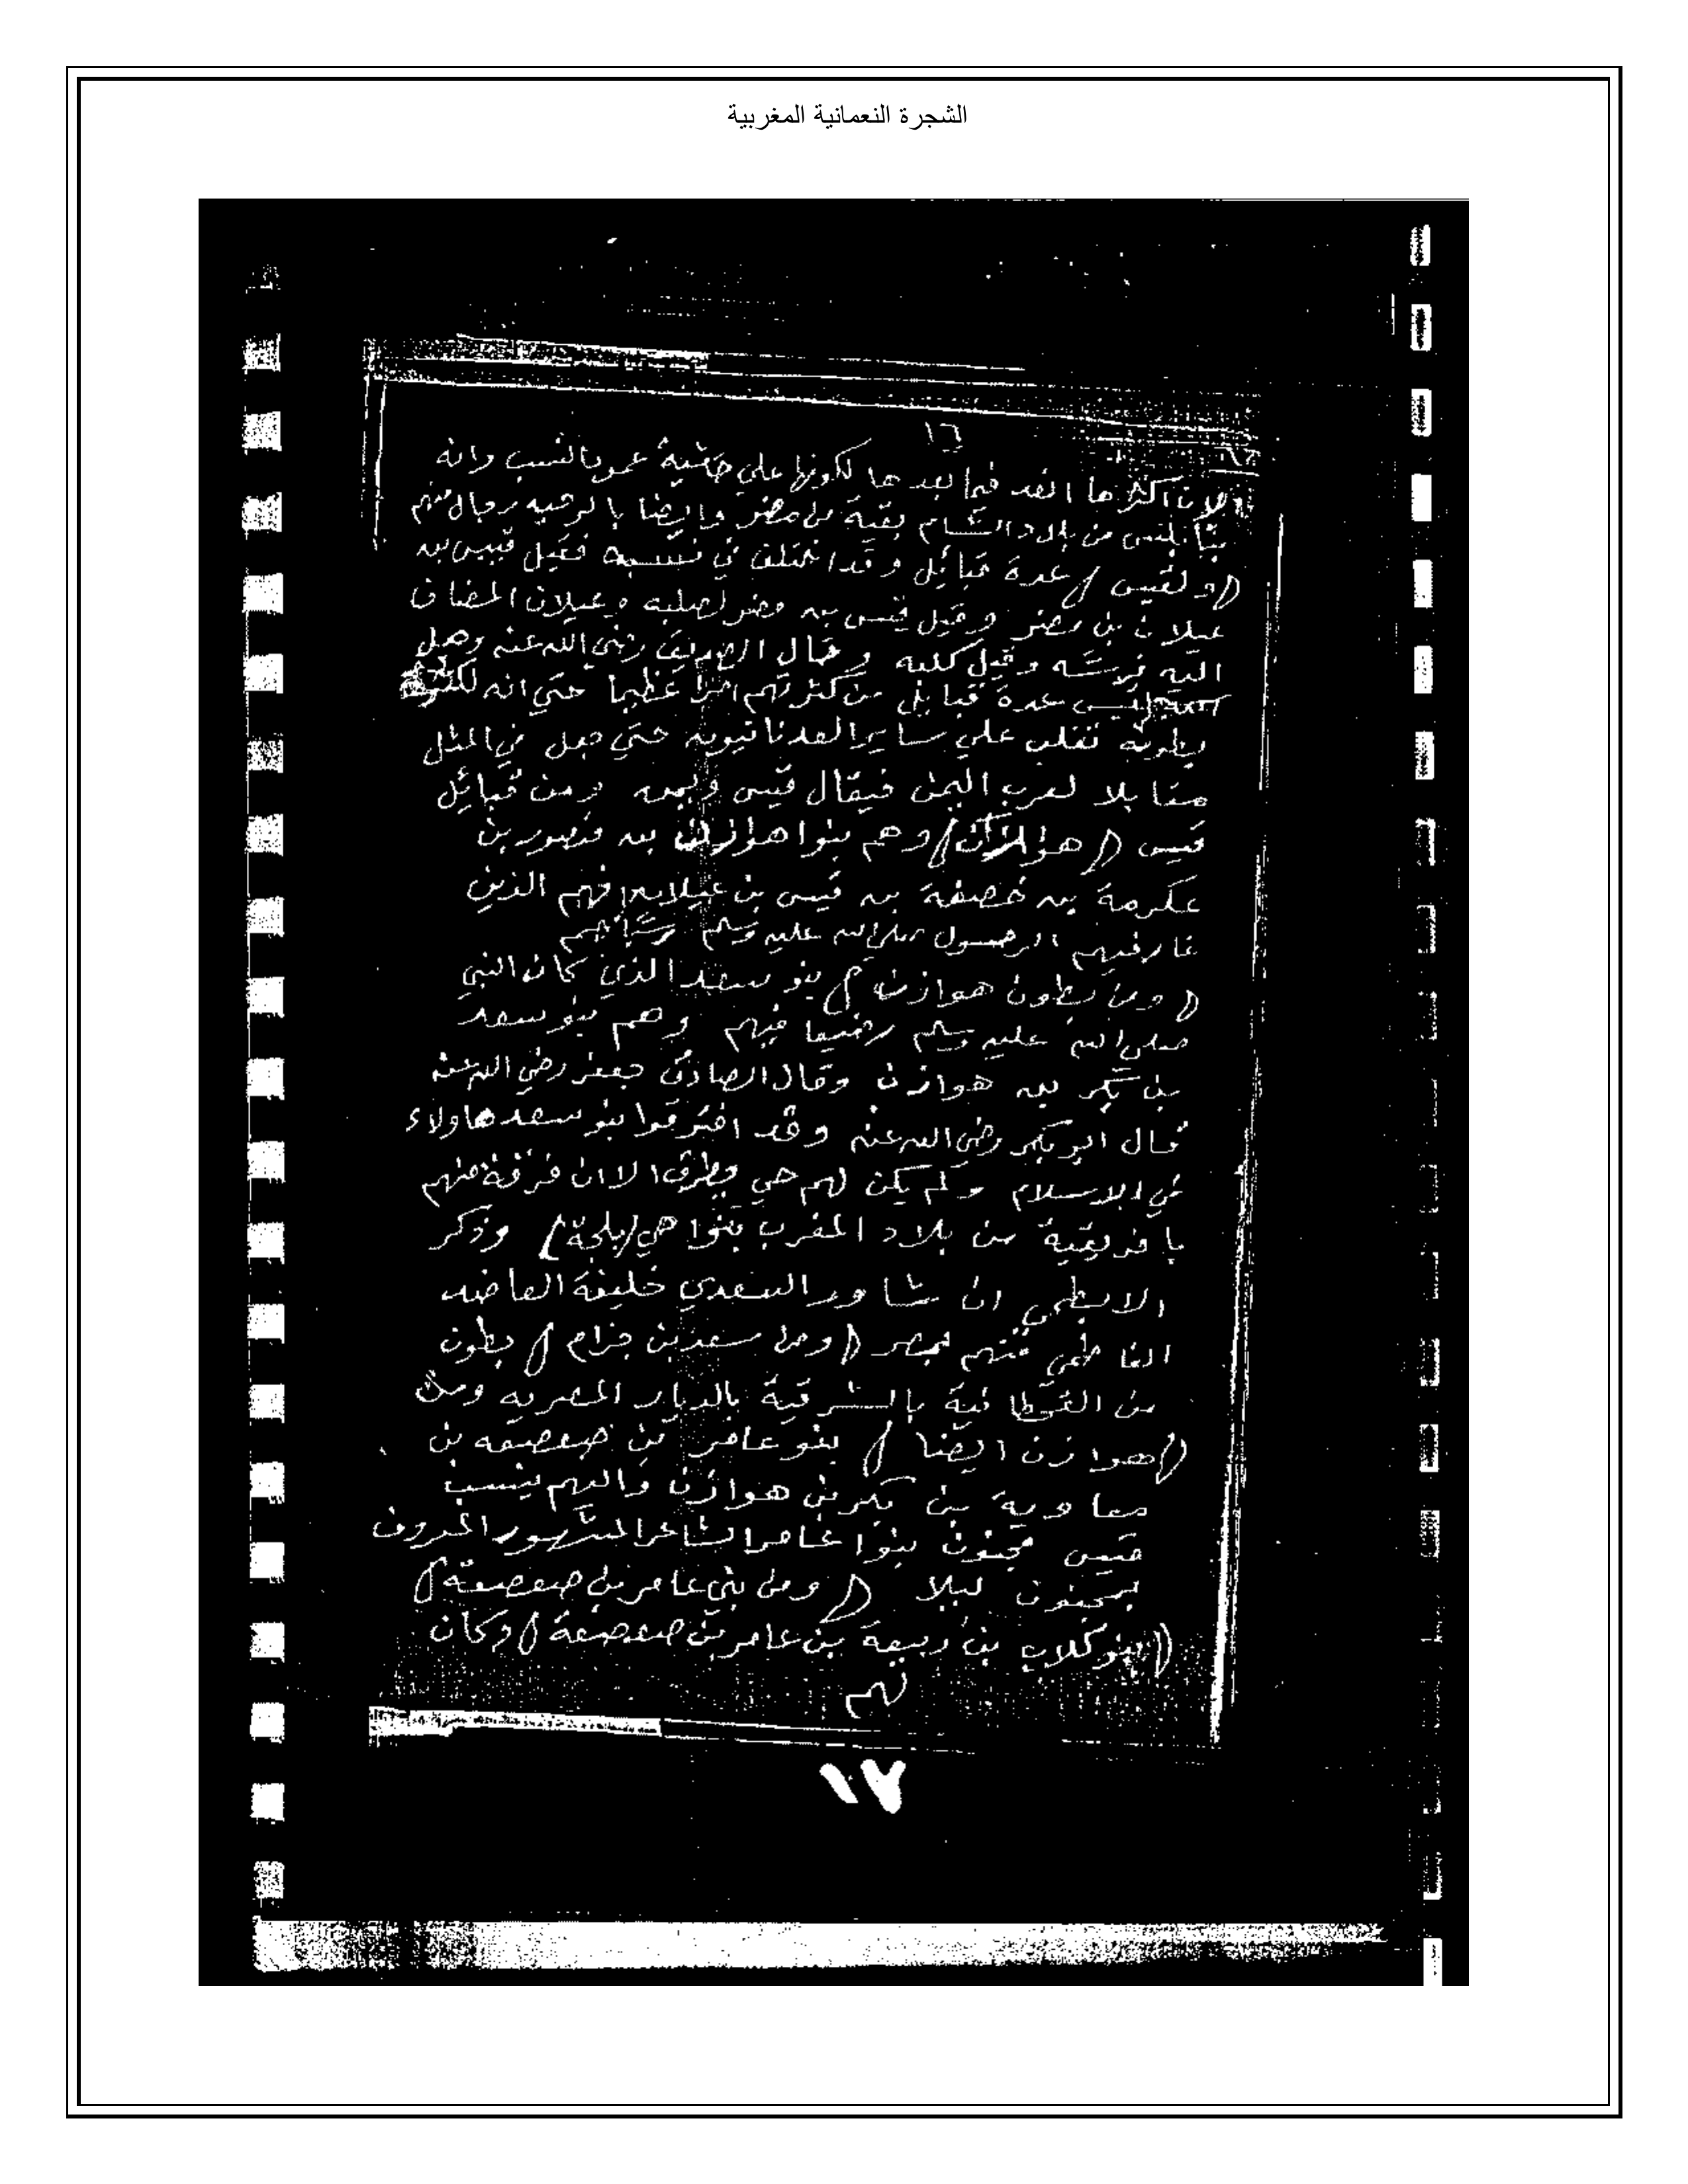 الشجرة النعمانية المغربية
١٦
اكثرها فيما بعدها لكونها على حاشية عمود النسب وانه
من بلاد الشام بقية من مضر وايضا رجال منهم
(ولقيس) عدة قبائل وقد اختلف في نسبه فقيل قيس بن
عيلان بن مضر وقيل قيس بن مضر لصلبه وعيلان المضاف
اليه فرسه وقيل كلبه وقال رضي الله عنه وجعل
عدة قبايل من كثرتهم امرا عظيما حتى انه
بطونه تغلب على ساير العدنانيون حتى جعل في المثل
مقابلا لعرب اليمن فيقال قيس ويمن ومن قبائل
قيس (هوازن) وهم بنوا هوازن بن منصور بن
عكرمة بن خصفة بن قيس بن عيلان فهم الذين
غار فيهم الرسول صلى الله عليه وسلم
(ومن بطون هوازن) بنو سعد الذي كان النبي
صلى الله عليه وسلم رضيعا فيهم وهم بنو سعد
بن بكر بن هوازن وقال الصادق جعفر رضي الله عنه
قال ابو بكر رضي الله عنه وقد افترقوا بنو سعد هاولاء
في الاسلام ولم يكن لهم حي يطرق الا ان فرقة منهم
بافريقية من بلاد المغرب بنوا حي (بلجة) وذكر
ان شاور السعدي خليفة العاضد
الفاطمي منهم بمصر (ومن سعد بن جزام) بطون
من القحطانية بالشرقية بالديار المصريه ومن
(هوازن ايضا) بنو عامر بن صعصعه بن
معاوية بن بكر بن هوازن واليهم ينسب
قيس مجنون بنوا عامر الشاعر المشهور المعروف
بمجنون ليلا (ومن بني عامر بن صعصعة)
(بنو كلاب بن ربيعة بن عامر بن صعصعة) وكان
لهم
١٧